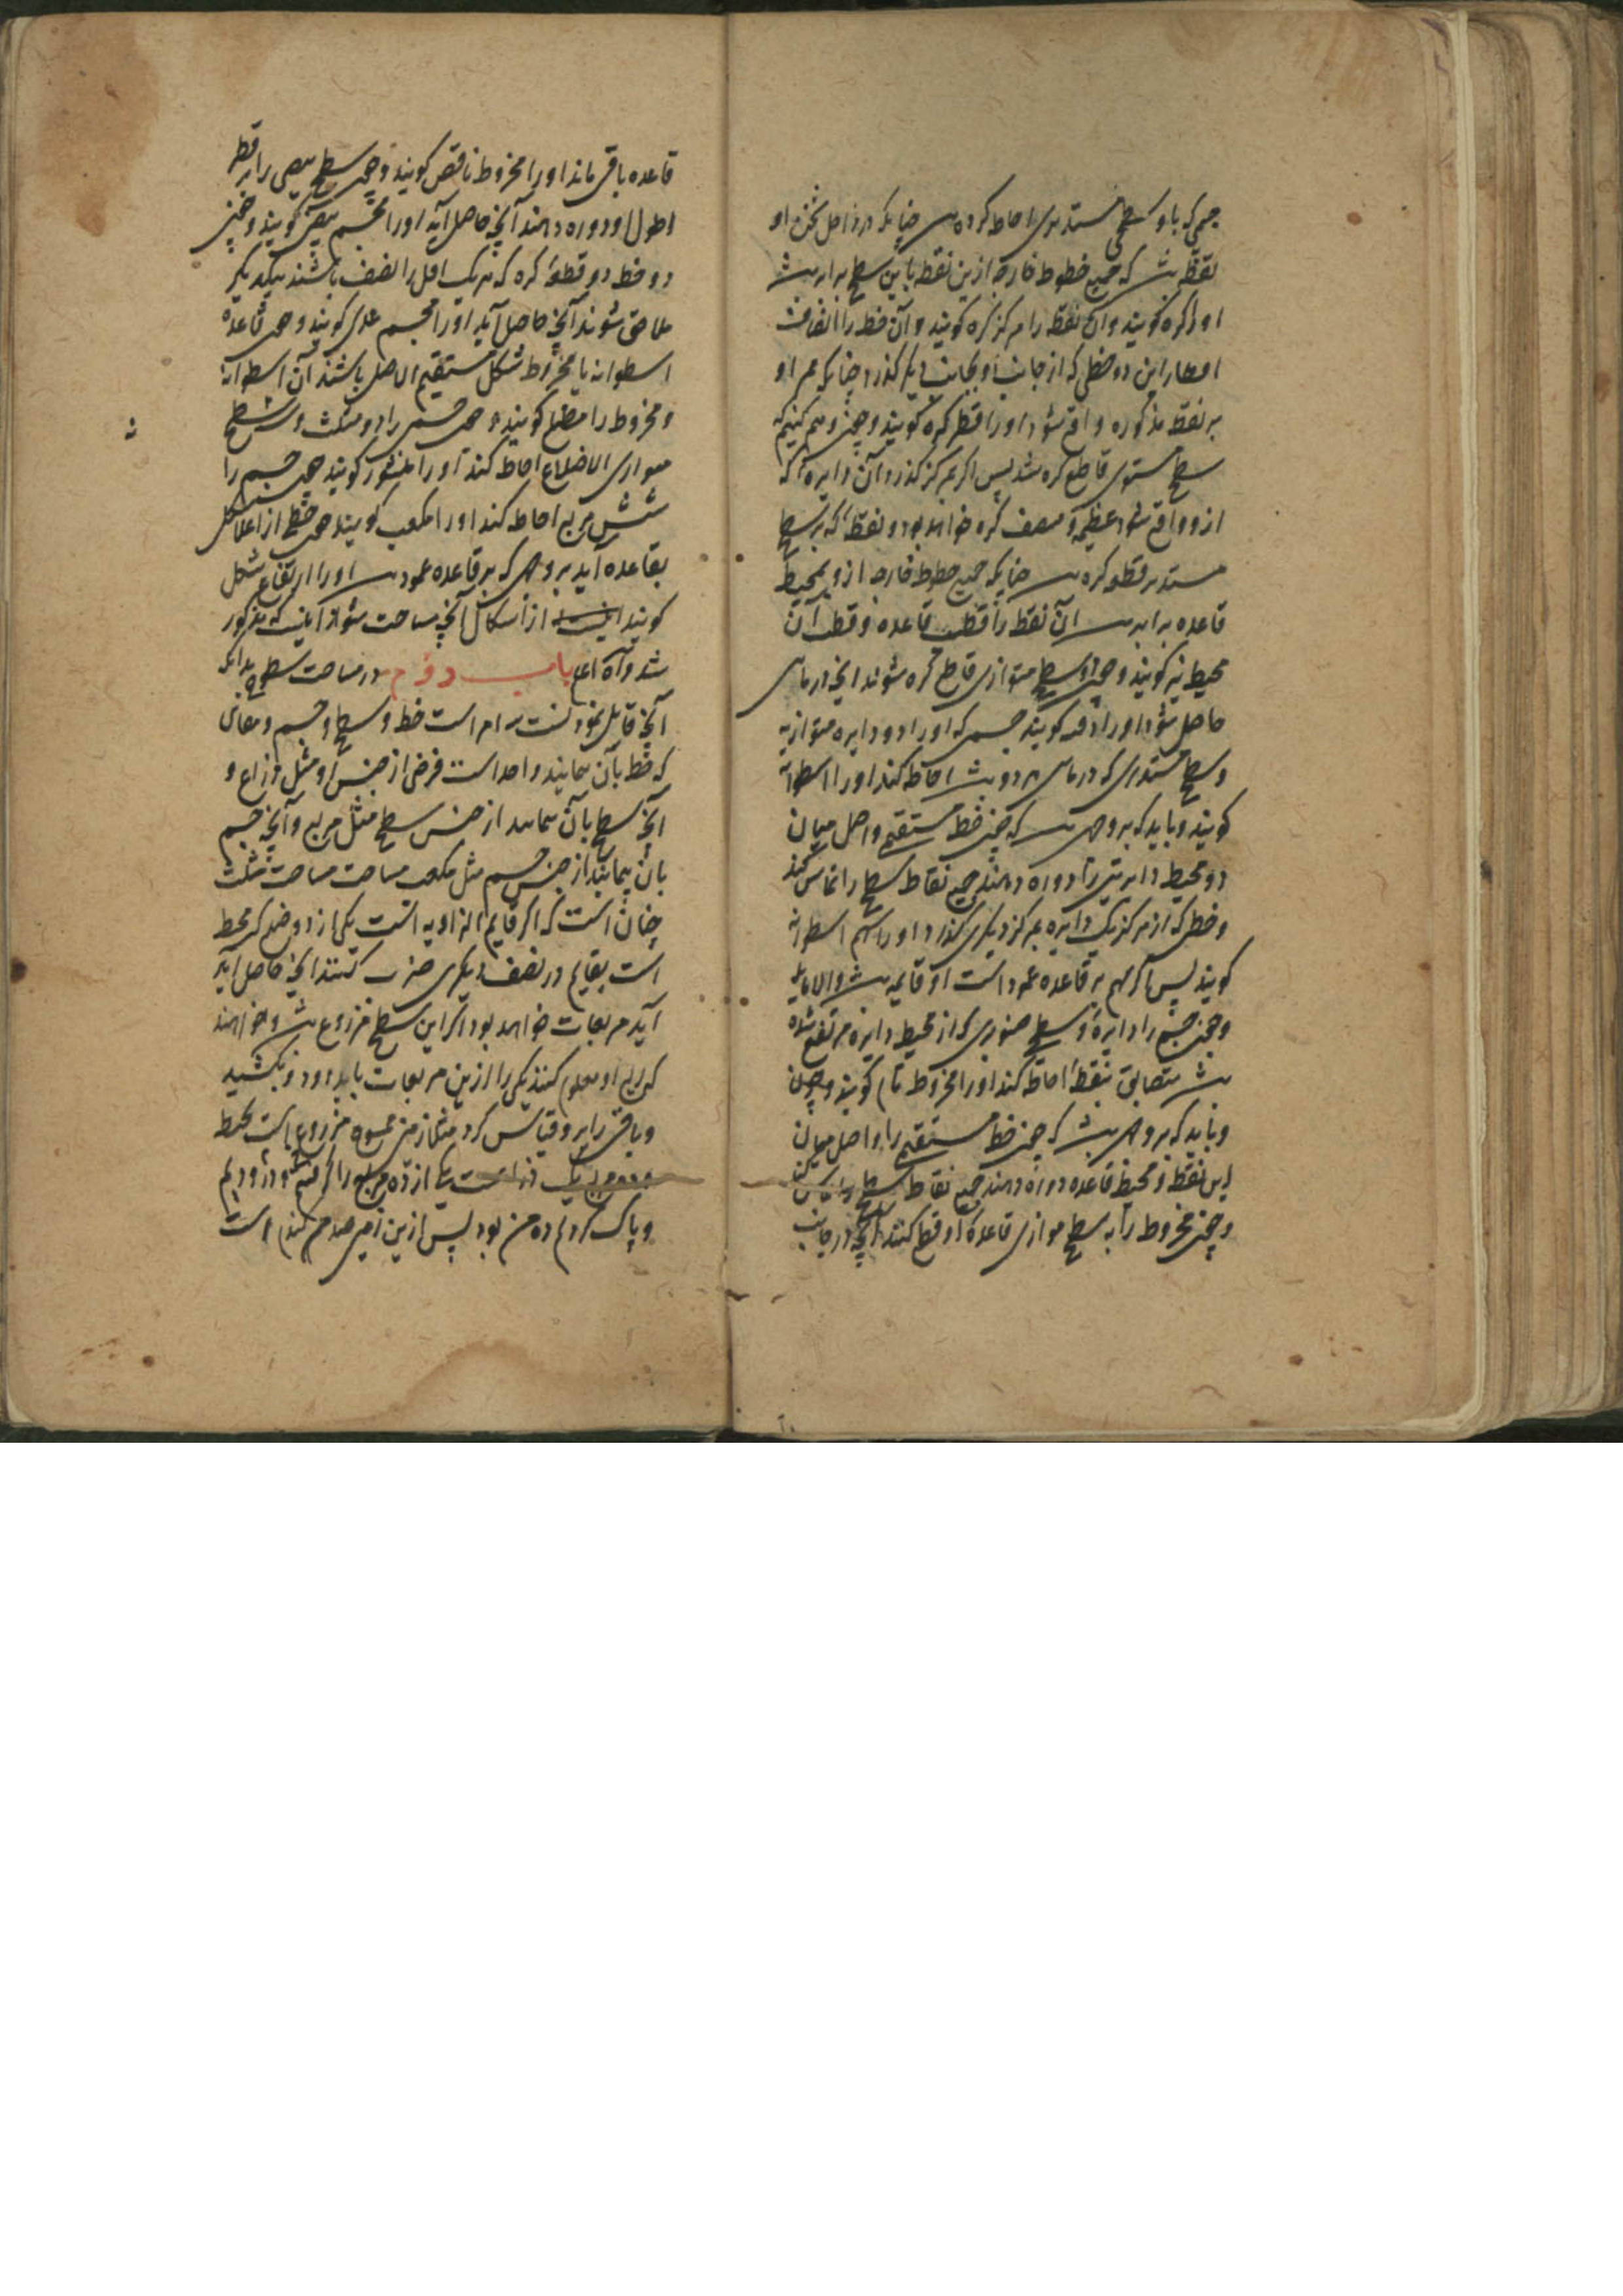 جسمی که باو سطحی مستدیری احاطه کرده است چنانکه در داخل ثخن او
نقطه باشد که جمیع خطوط خارجه ازین نقطه باین سطح برابر باشد
او را کره گویند و آن نقطه را مرکز کره گویند و آن خط را انصاف
اقطار این ده خطی که از جانب او بجانب دیگر گذرد چنانکه ممر او
بر نقطه مذکوره واقع شود او را قطر کره گویند و چون وهم کنیم که
سطح مستوی قاطع کره شد پس اگر بمرکز گذرد آن دایره که
ازو واقع شود عظیمه و منصف کره خواهد بود و نقطه که بر سطح
مستدیر قطعه کره است چنانکه جمیع خطوط خارجه ازو بمحیط
قاعده برابر است آن نقطه را قطب قاعده و قطب آن
محیط نیز گویند و چون دو سطح متوازی قاطع کره شوند آنچه در میان
حاصل شود او را دف گویند جسمی که او را دو دایره متوازیه
و سطح مستدیری که در میان هر دو باشد احاطه کند او را اسطوانه
گویند و باید که بر وجهی است که چون خط مستقیم واصل میان
دو محیط دایرتین را دوره دهند جمیع نقاط سطح را تماس کند
و خطی که از مرکز یک دایره بمرکز دیگری گذرد او را سهم اسطوانه
گویند پس اگر سهم بر قاعده عمود است او قایمه باشد والا مایله
و چون جسم را دایره و سطح صنوبری که از محیط دایره مرتفع شده
باشد متضایق بنقطه احاطه کند او را مخروط تام گویند و چون
و باید که بر وجهی باشد که چون خط مستقیم را واصل میان
این نقطه و محیط قاعده دوره دهند جمیع نقاط سطح را تماس کند
و چون مخروط را به سطح موازی قاعده او قطع کنند آنچه در جانب
قاعده باقی ماند او را مخروط ناقص گویند و چون سطح بیضی را بر قطر
اطول او دوره دهند آنچه حاصل آید او را مجسم بیضی گویند و چون
دو خط دو قطعه کره که هر یک اقل از نصف باشند بیکدیگر
ملاصق شوند آنچه حاصل آید او را مجسم عدسی گویند و چون قاعده
اسطوانه یا مخروط شکل مستقیم الاضلاع باشند آن اسطوانه
و مخروط را مضلع گویند و چون جسمی را دو مثلث و سه سطح
متوازی الاضلاع احاطه کند او را منشور گویند چون جسم را
شش مربع احاطه کند او را مکعب گویند چون خطی از اعلای شکل
بقاعده آید بر وجهی که بر قاعده عمود است او را ارتفاع شکل
گویند اینست از اشکال آنچه مساحت شود از اینست که مذکور
شد والله اعلم باب دوم در مساحت سطوح بدانکه
آنچه قابل نمودنست سه امر است خط و سطح و جسم و معانی
که خط بآن پیمایند واحد است فرضی از جنس او مثل ذراع و
آنچه سطح بآن پیمایند از جنس سطح مثل مربع و آنچه جسم
بآن پیمایند از جنس جسم مثل مکعب مساحت مساحت مثلث
چنان است که اگر قایم الزاویه است یکی از دو ضلع که محیط
است بقایم در نصف دیگری ضرب کنند آنچه حاصل آید
آید مربعات خواهد بود اگر این سطح مزروع باشد و خواهند
که ریع او معلوم کنند یکی را ازین مربعات باید درود و بکشید
و باقی را برو قیاس کرد مثلا زمین عسوه مزروع است محیط
مربع یک ذراعست یکی از ده مربع را گرفتم و درودیم
و پاک کردم ده من بود پس ازین زمین صد من گندم است